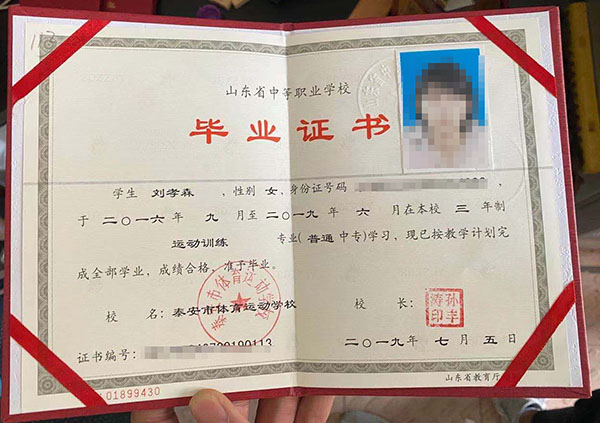 山东省中等职业学校
毕业证书
学生 刘孝森 ,性别 女,身份证号码
于 二〇一六年 九 月至二〇一九年 六 月在本校 三 年制
运动训练 专业(普通中专)学习,现已按教学计划完
成全部学业,成绩合格,准予毕业。
校 名:泰安市体育运动学校 校 长:
泰安市体育运动学校
孙丰涛印
证书编号: 0113 二〇一九年 七 月 五 日
山东省教育厅
01899430